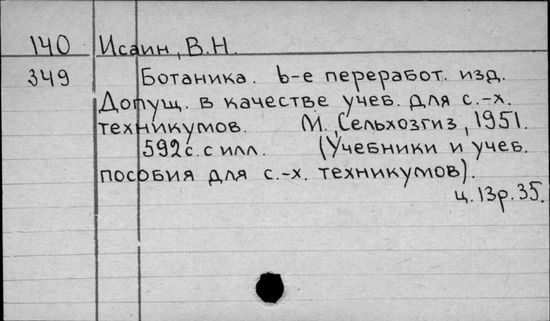 140 Исаин, В.Н.
349 Ботаника. 6-е переработ. изд.
Допущ. в качестве учеб. для с.-х.
техникумов. М., Сельхозгиз, 1951.
592 с. с илл. (Учебники и учеб.
пособия для с.-х. техникумов).
ц. 13р. 35.